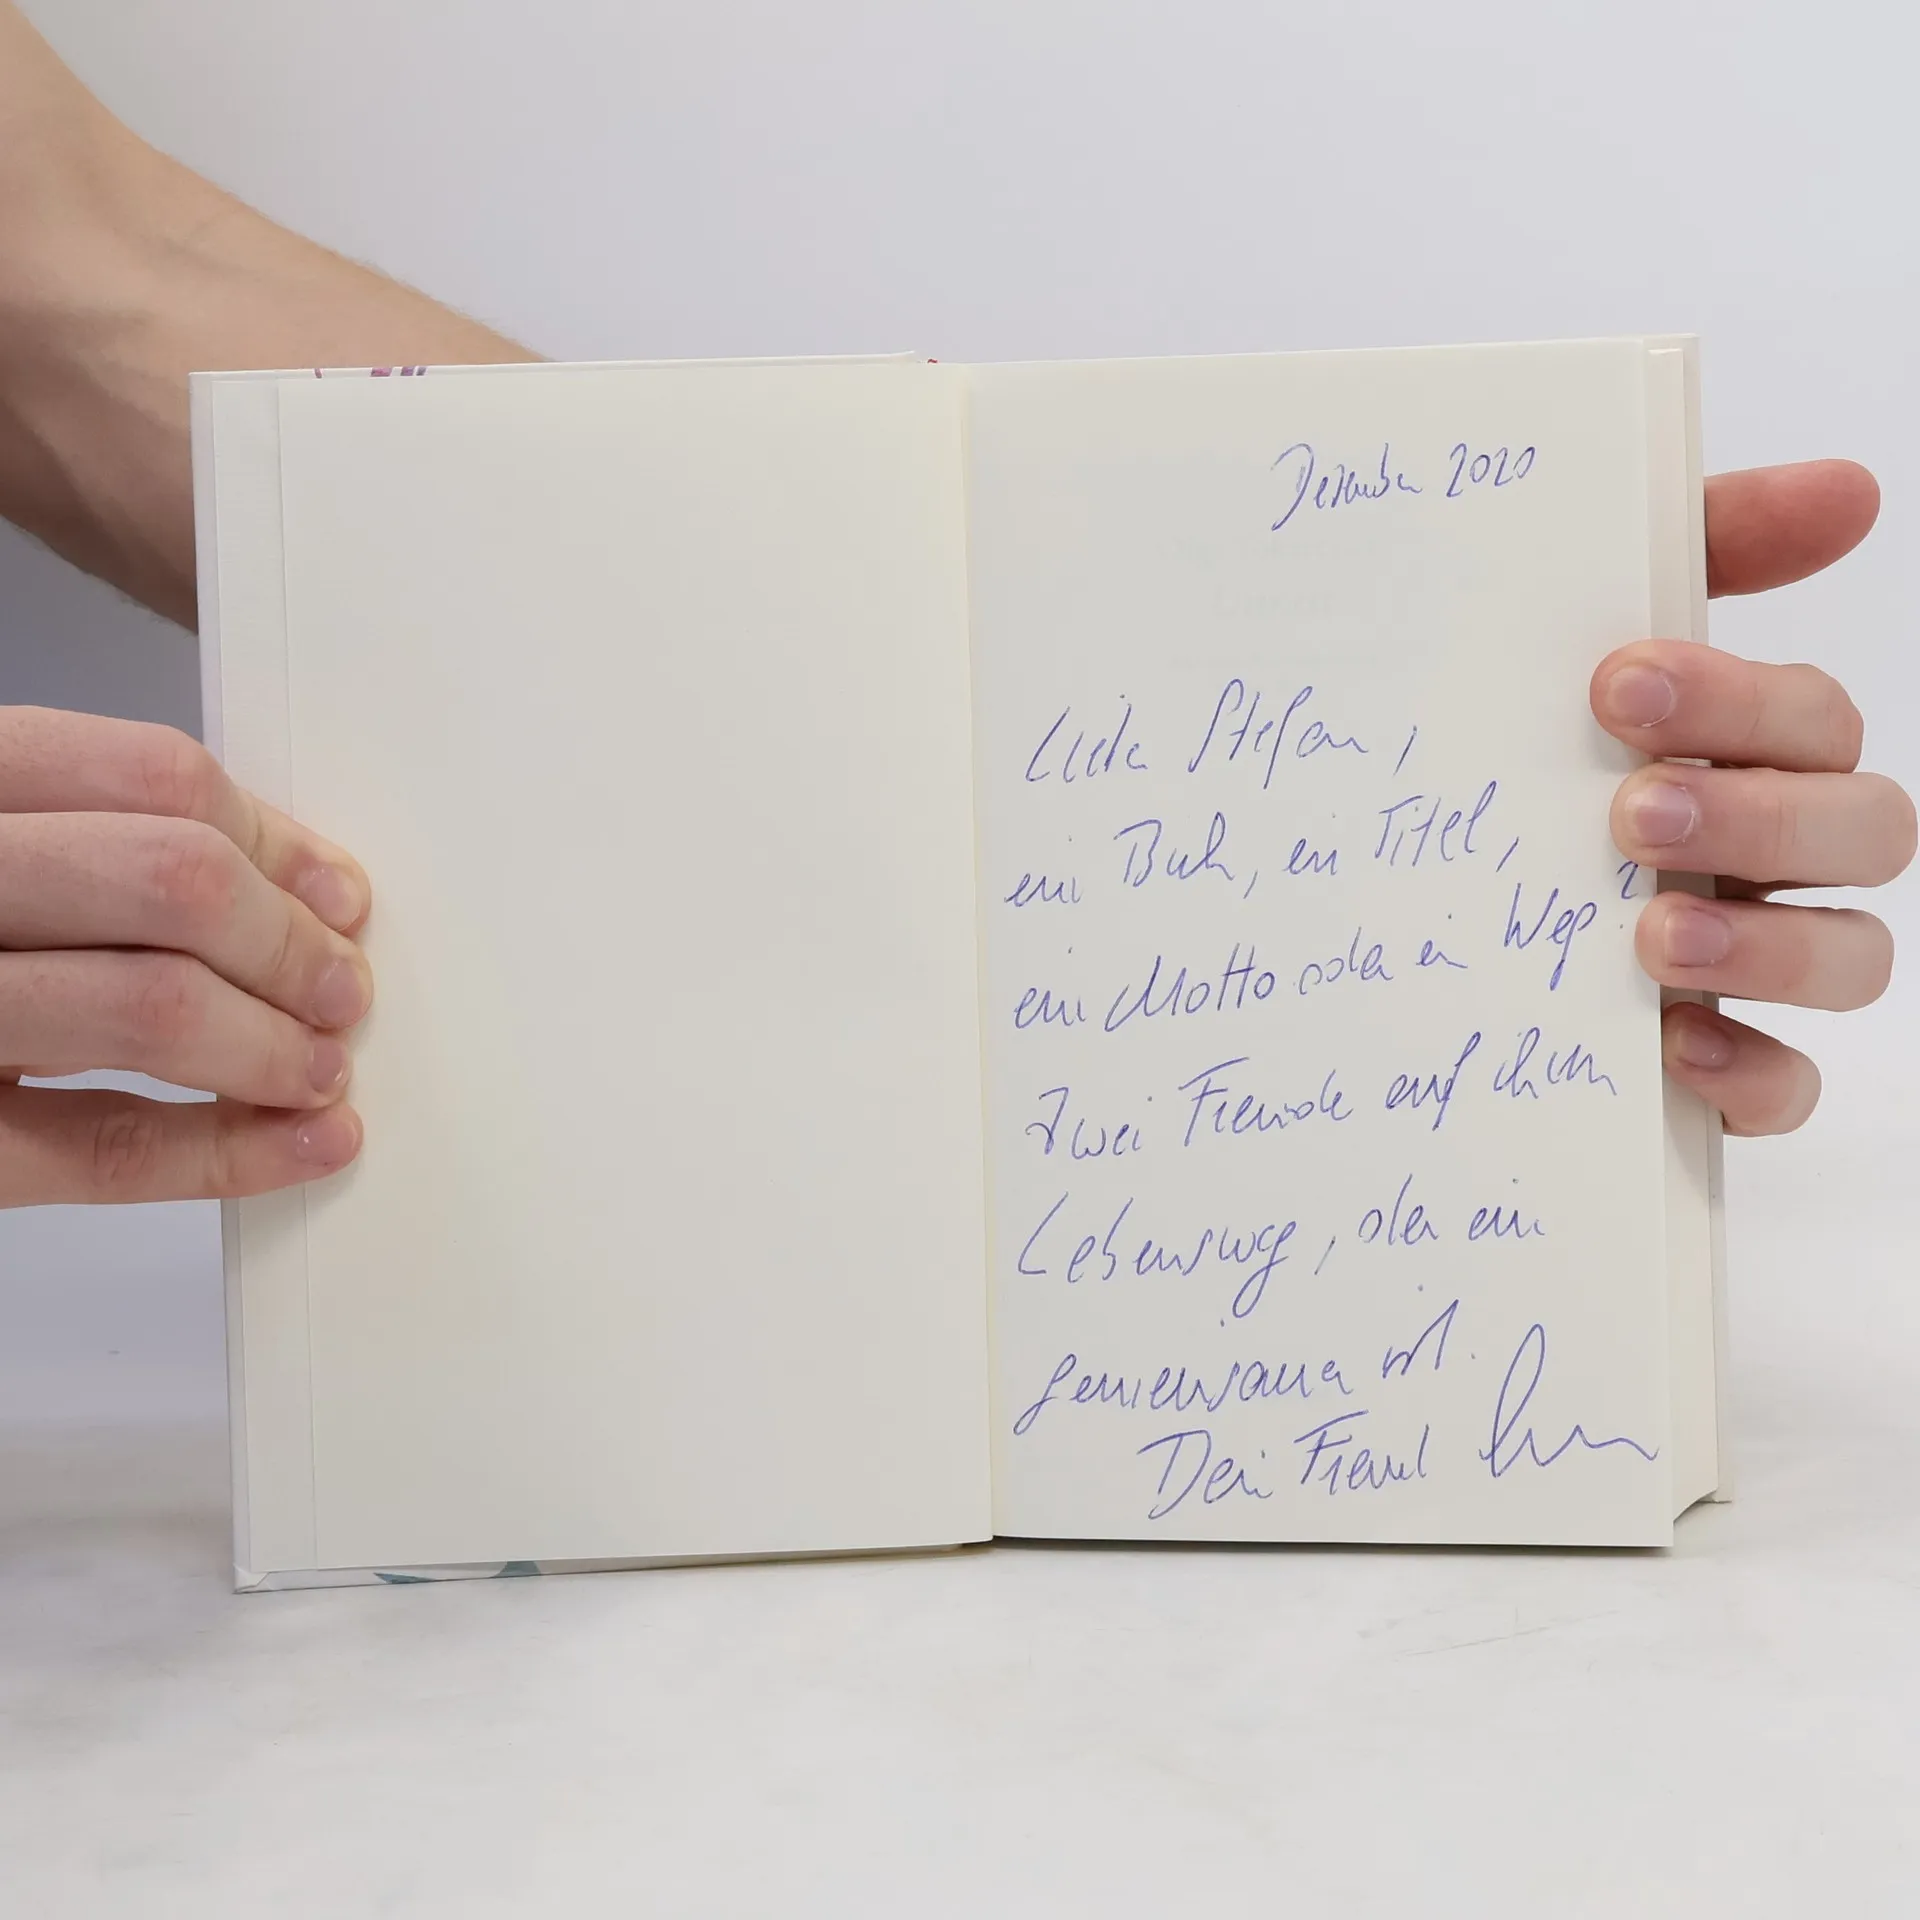 Dezember 2020
Lieber Stefan,
ein Buch, ein Titel,
ein Motto oder ein Weg?
Zwei Freunde auf ihrem
Lebensweg, der ein
gemeinsamer ist.
Dein Freund